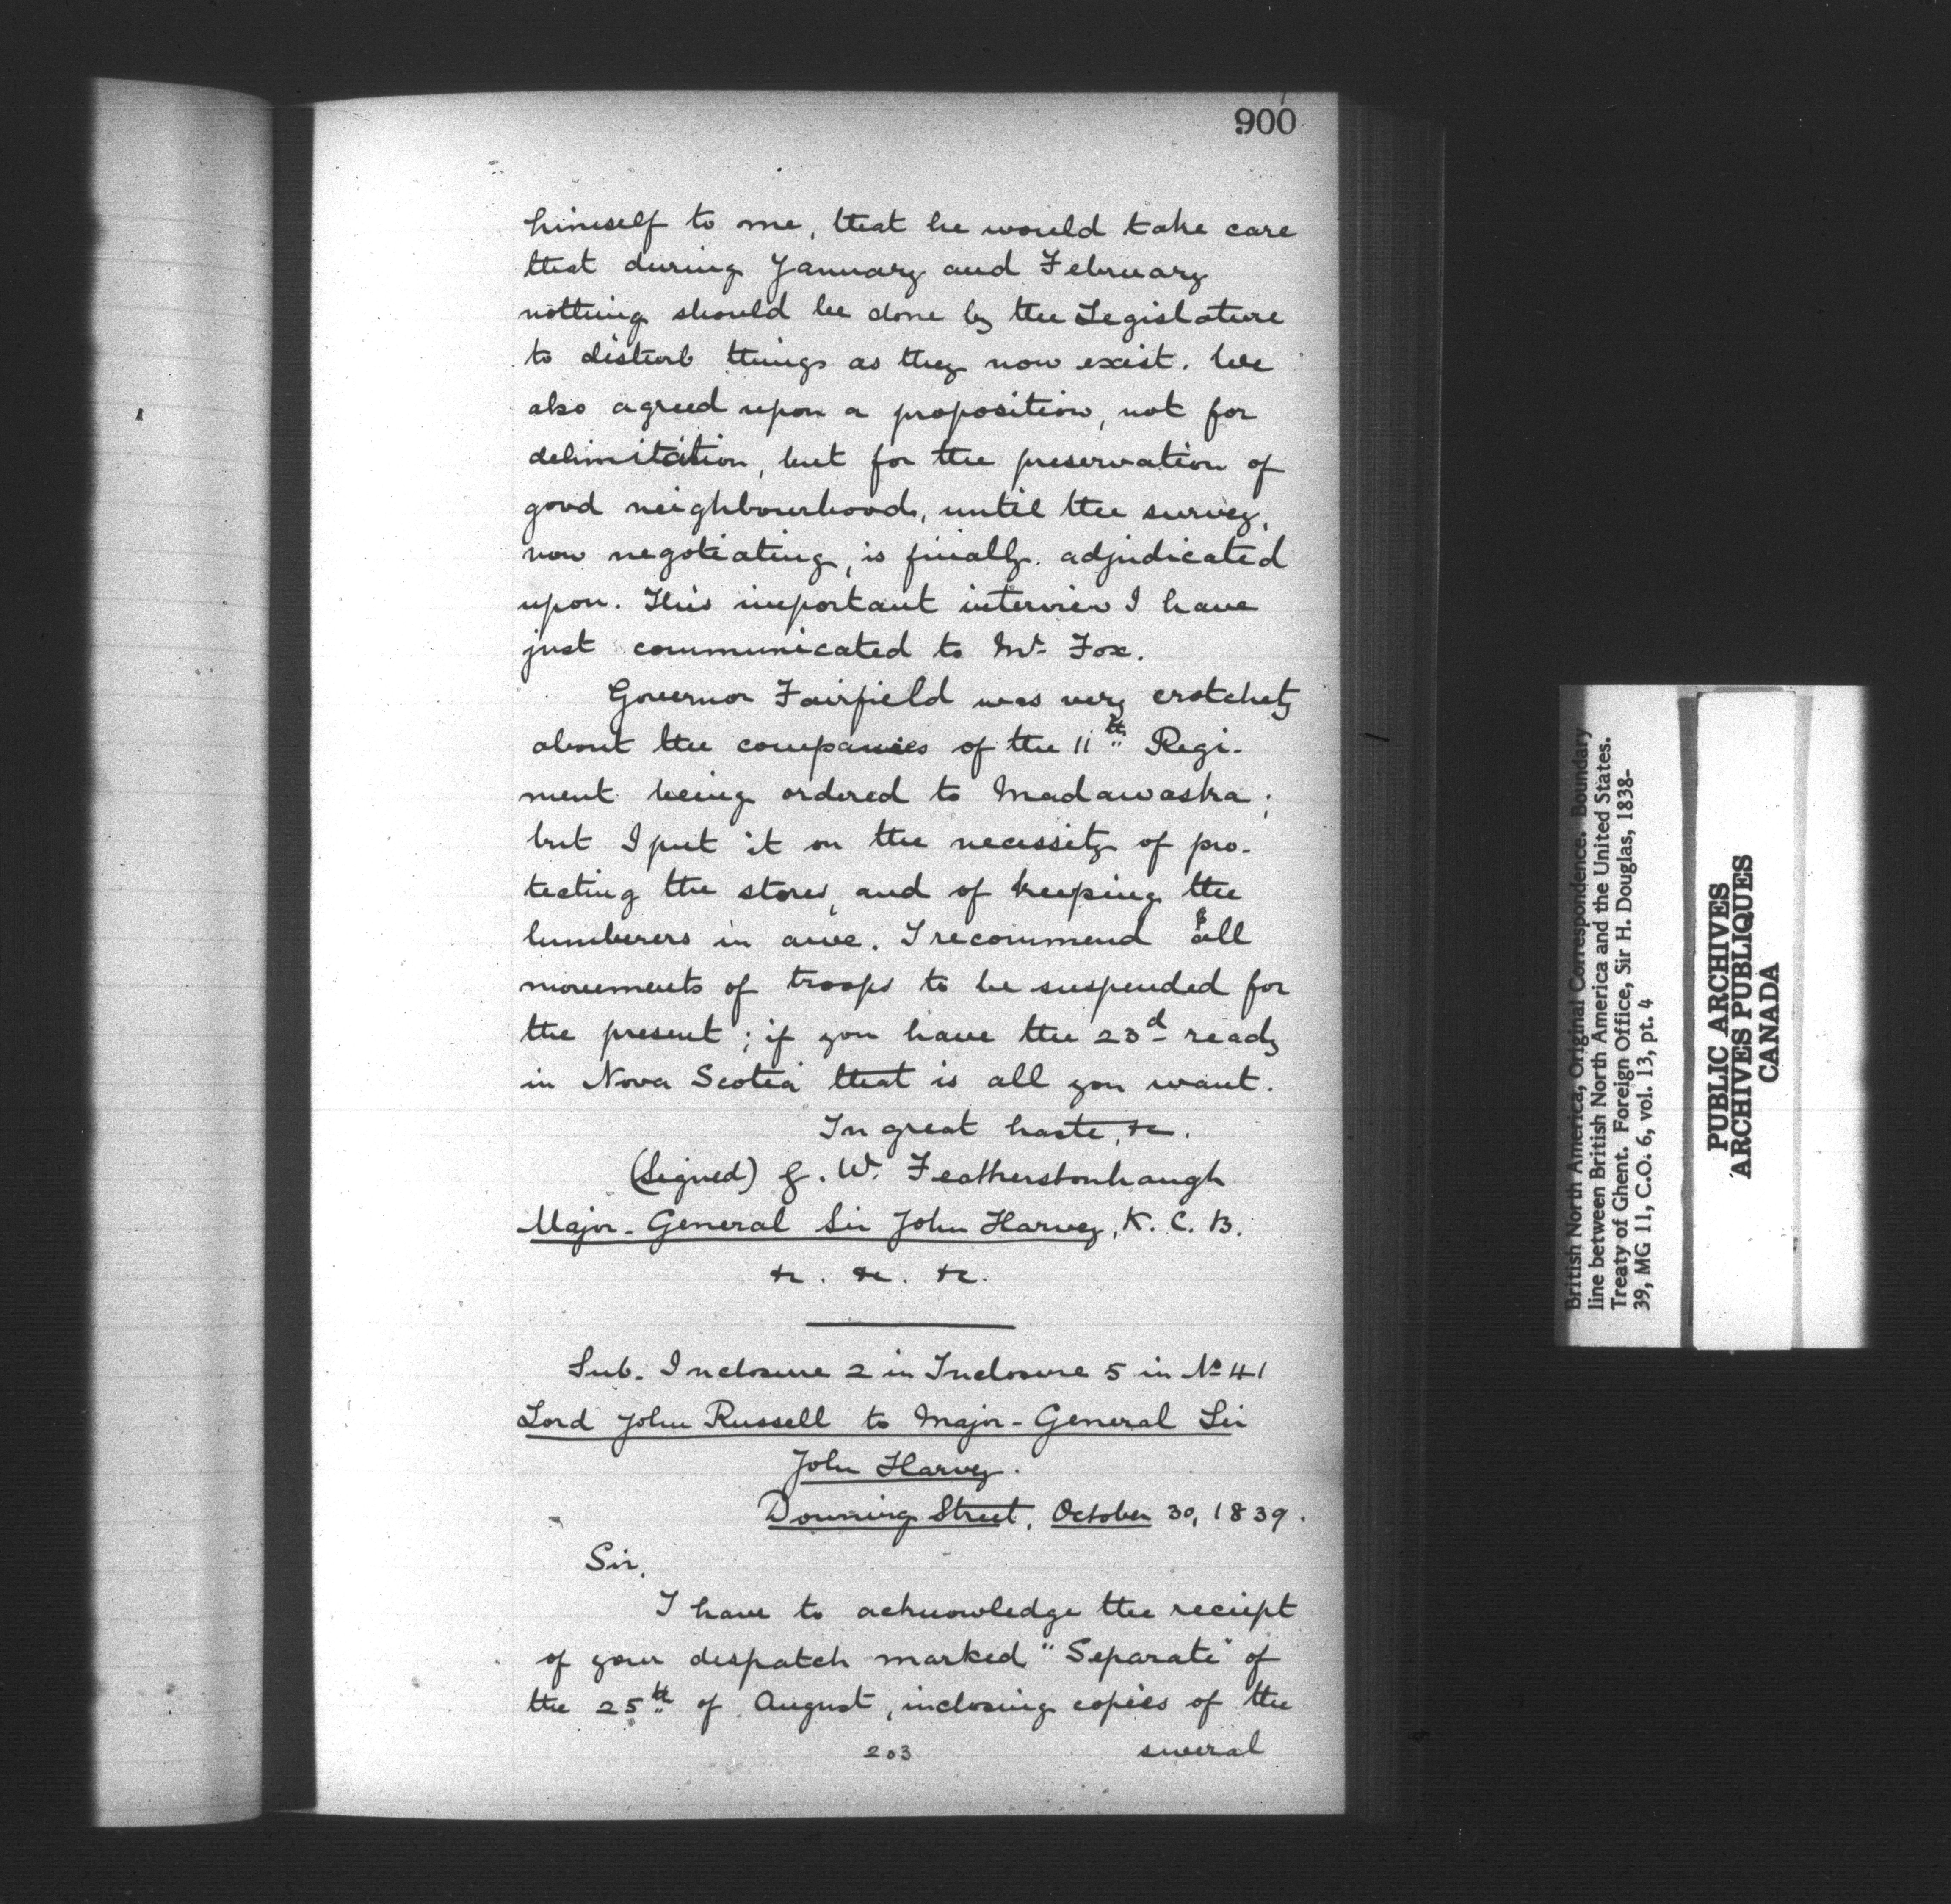 900
himself to me, that he would take care
that during January and February
nothing should be done by the Legislature
to disturb things as they now exist. We
also agreed upon a proposition, not for
delimitation, but for the preservation of
good neighbourhood, until the survey,
now negotiating, is finally adjudicated
upon. This important interview I have
just communicated to Mr. Fox.
Governor Fairfield was very crotchety
about the companies of the 11th Regi-
ment being ordered to Madawaska;
but I put it on the necessity of pro-
tecting the stores, and of keeping the
lumberers in awe. I recommend all
movements of troops to be suspended for
the present; if you have the 23d ready
in Nova Scotia that is all you want.
In great haste, &c.
(Signed) G. W. Featherstonhaugh
Major-General Sir John Harvey, K. C. B.
&c. &c. &c.
Sub-Inclosure 2 in Inclosure 5 in No 41
Lord John Russell to Major-General Sir
John Harvey.
Downing Street, October 30, 1839.
Sir,
I have to acknowledge the reciept
of your despatch marked "Separate" of
the 25th of August, inclosing copies of the
203 several
British North America, Original Correspondence. Boundary
line between British North America and the United States.
Treaty of Ghent. Foreign Office, Sir H. Douglas, 1838-
39, MG 11, C.O. 6, vol. 13, pt. 4
PUBLIC ARCHIVES
ARCHIVES PUBLIQUES
CANADA